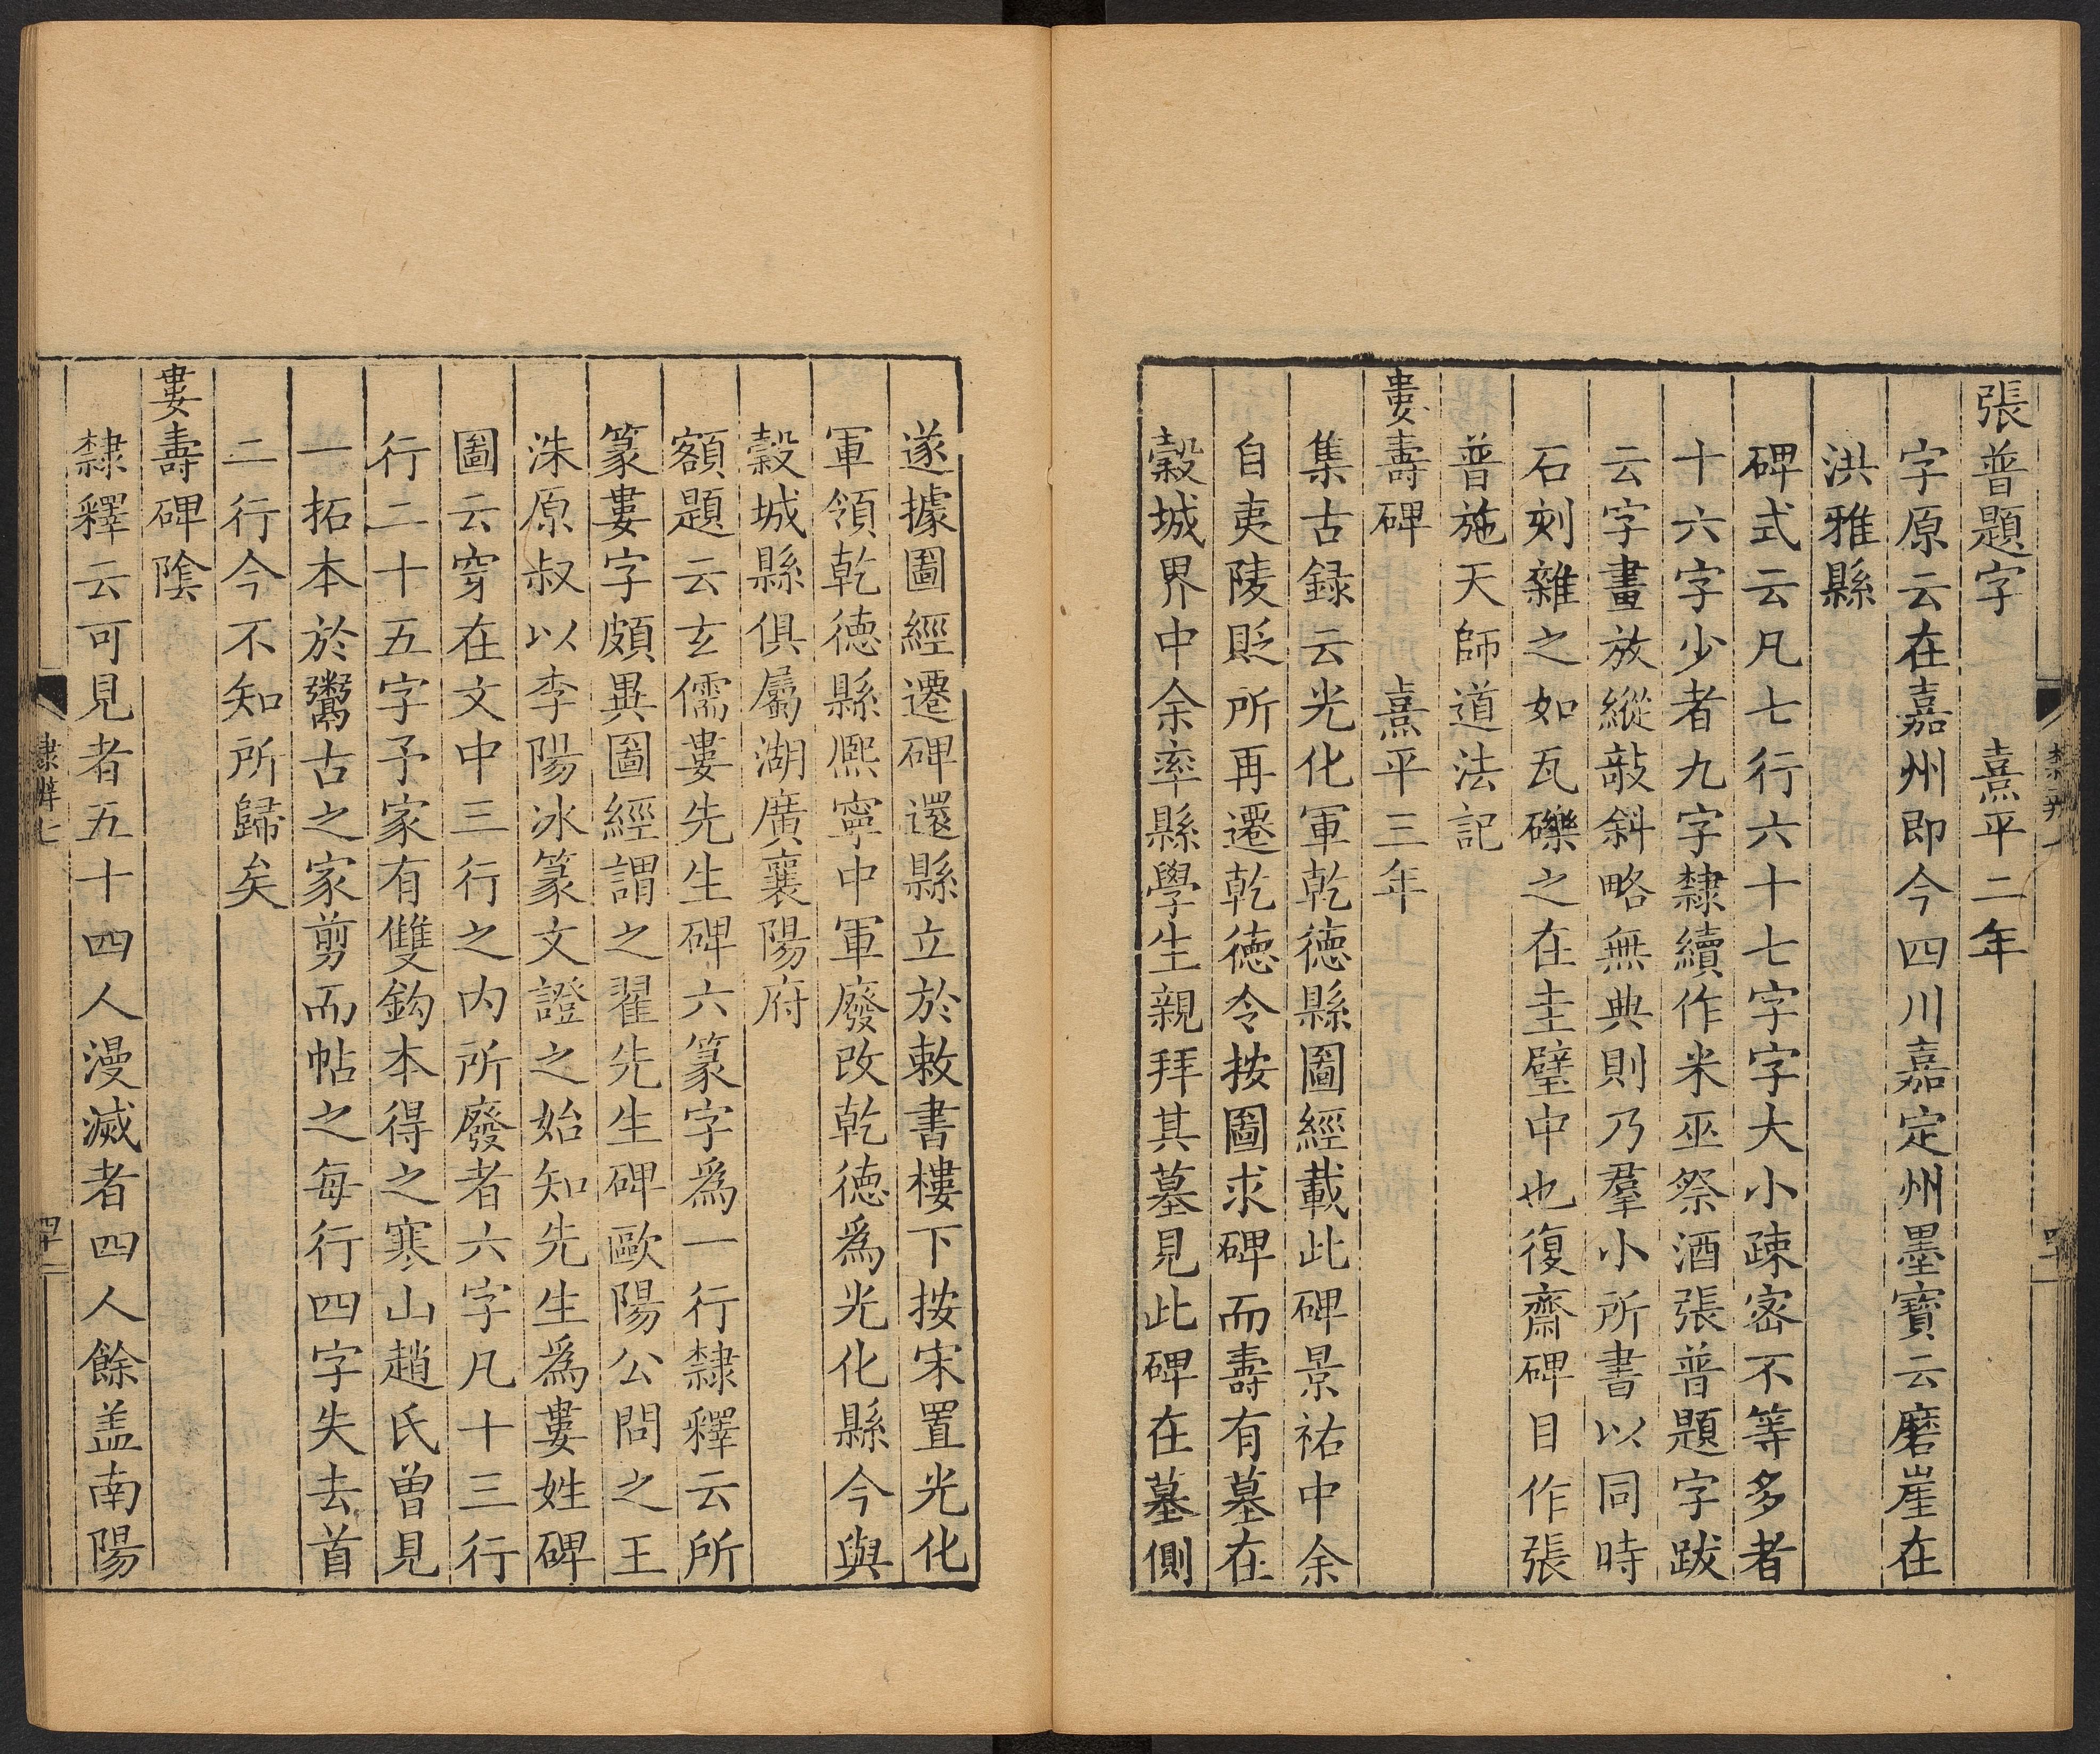 張普題字　熹平二年
字原云在嘉州即今四川嘉定州墨寶云磨崖在
洪雅縣
碑式云凡七行六十七字字大小疎宻不等多者
十六字少者九字隸續作米巫祭酒張普題字跋
云字畫放縱敧斜略無典則乃羣小所書以同時
石刻雜之如瓦礫之在圭璧中也復齋碑目作張
普施天師道法記
婁壽碑　熹平三年
集古録云光化軍乾徳縣圖經載此碑景祐中余
自夷陵貶所再遷乾徳令按圖求碑而壽有墓在
穀城界中余率縣學生親拜其墓見此碑在墓側
遂據圖經遷碑還縣立於敕書樓下按宋置光化
軍領乾徳縣熈寧中軍廢改乾徳爲光化縣今與
穀城縣俱屬湖廣襄陽府
額題云玄儒婁先生碑六篆字爲一行隸釋云所
篆婁字頗異圖經謂之翟先生碑歐陽公問之王
洙原叔以李陽冰篆文證之始知先生爲婁姓碑
圖云穿在文中三行之内所廢者六字凡十三行
行二十五字予家有雙鈎本得之寒山趙氏曽見
一拓本於鬻古之家剪而帖之每行四字失去首
二行今不知所歸矣
婁壽碑陰
隸釋云可見者五十四人漫滅者四人餘盖南陽
隸辨七
四十